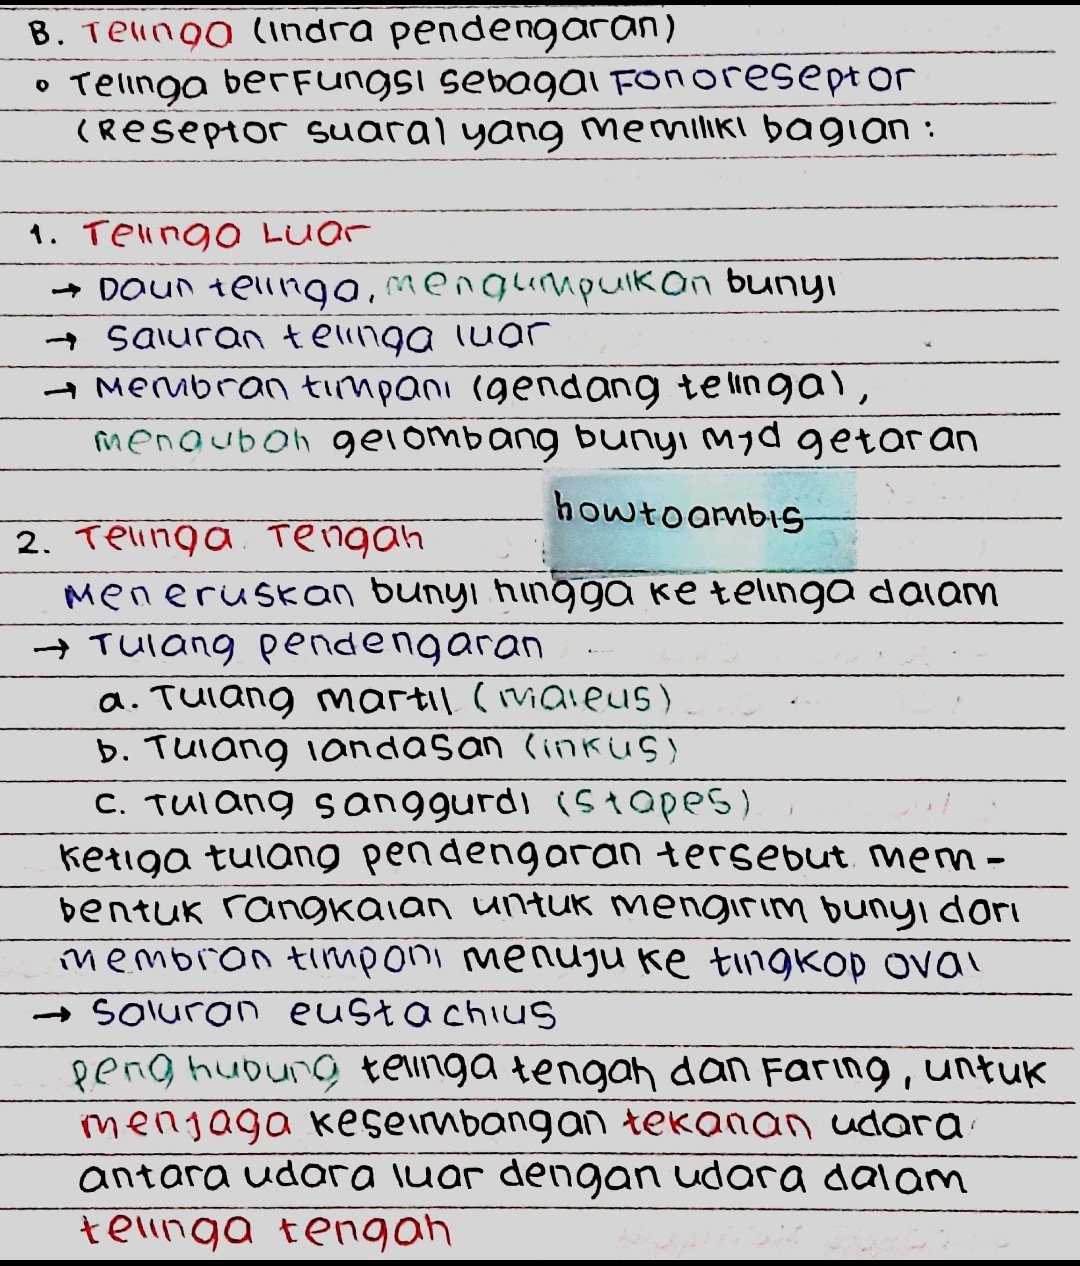 B. Telinga (indra pendengaran)
• Telinga berfungsi sebagai Fonoreseptor
(Reseptor suara) yang memiliki bagian :
1. Telinga Luar
→ Daun telinga, mengumpulkan bunyi
→ Saluran telinga luar
→ Membran timpani (gendang telinga),
mengubah gelombang bunyi mjd getaran
howtoambis
2. Telinga Tengah
Meneruskan bunyi hingga ke telinga dalam
→ Tulang pendengaran
a. Tulang martil (maleus)
b. Tulang landasan (inkus)
c. Tulang sanggurdi (stapes)
Ketiga tulang pendengaran tersebut mem-
bentuk rangkaian untuk mengirim bunyi dari
membran timpani menuju ke tingkap oval
→ Saluran eustachius
penghubung telinga tengah dan Faring, untuk
menjaga keseimbangan tekanan udara
antara udara luar dengan udara dalam
telinga tengah